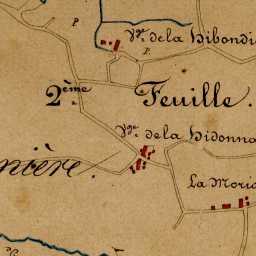 Vge. de la Hibondi
P.
P.
2ème Feuille.
Vge. de la Hidonna
nière.
La Moric